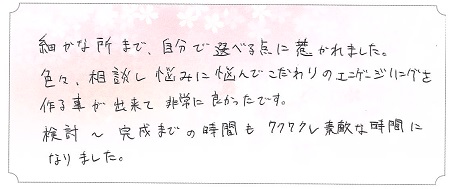 細かな所まで、自分で選べる点に惹かれました。
色々、相談し悩みに悩んでこだわりのエンゲージリングを
作る事が出来て非常に良かったです。
検討～完成までの時間もワクワクし素敵な時間に
なりました。